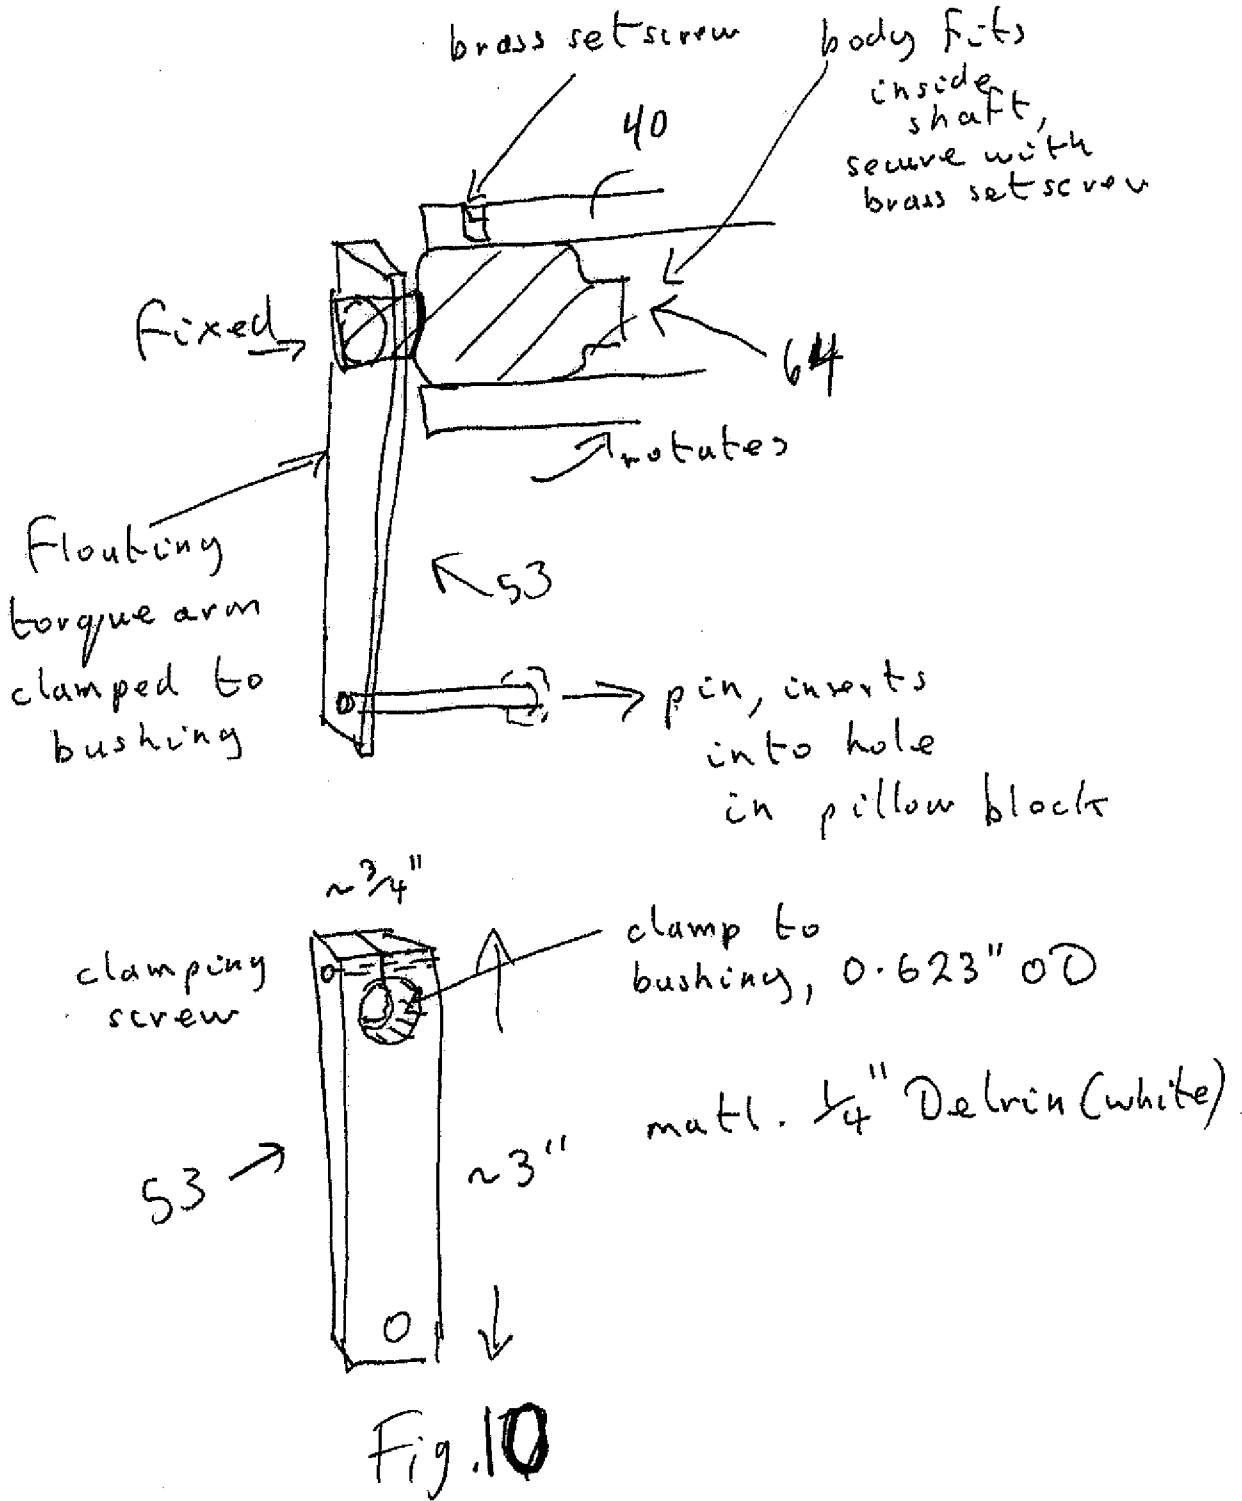 brass setscrew
body fits
inside
shaft,
secure with
brass setscrew
40
fixed
64
rotates
Floating
torque arm
clamped to
bushing
53
pin, inserts
into hole
in pillow block
~3/4"
clamping
screw
clamp to
bushing, 0.623" OD
matl. 1/4" Delrin (white)
53
~3"
Fig.10